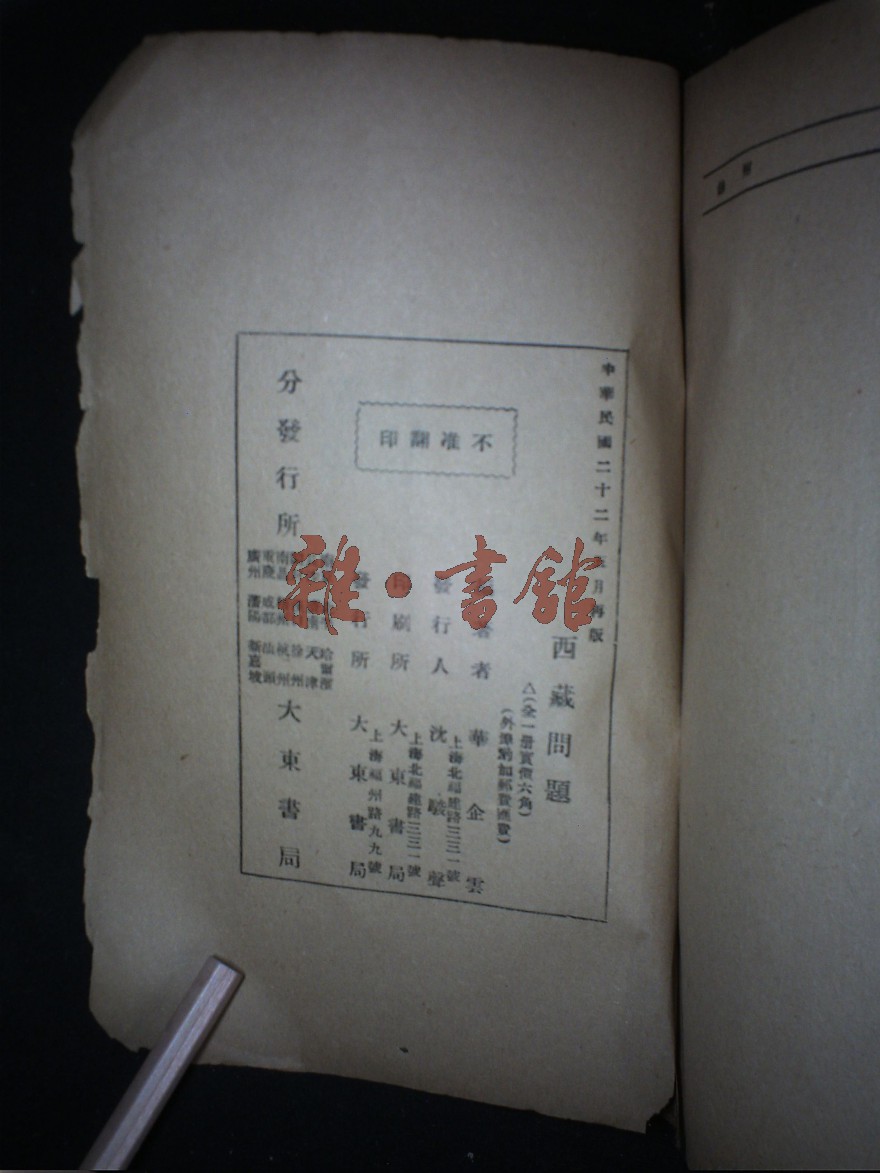 中華民國二十二年 月再版
西藏問題
△(全一册實價六角)
(外埠酌加郵費匯費)
著者 華企雲
發行人 沈駿聲
上海北福建路三三一號
印刷所 大東書局
上海北福建路三三一號
發行所 大東書局
上海福州路九九號
不准翻印
分發行所 大東書局
哈爾濱
天津
徐州
南昌 杭州
重慶 成都 汕頭
廣州 瀋陽 新嘉坡
雜·書館